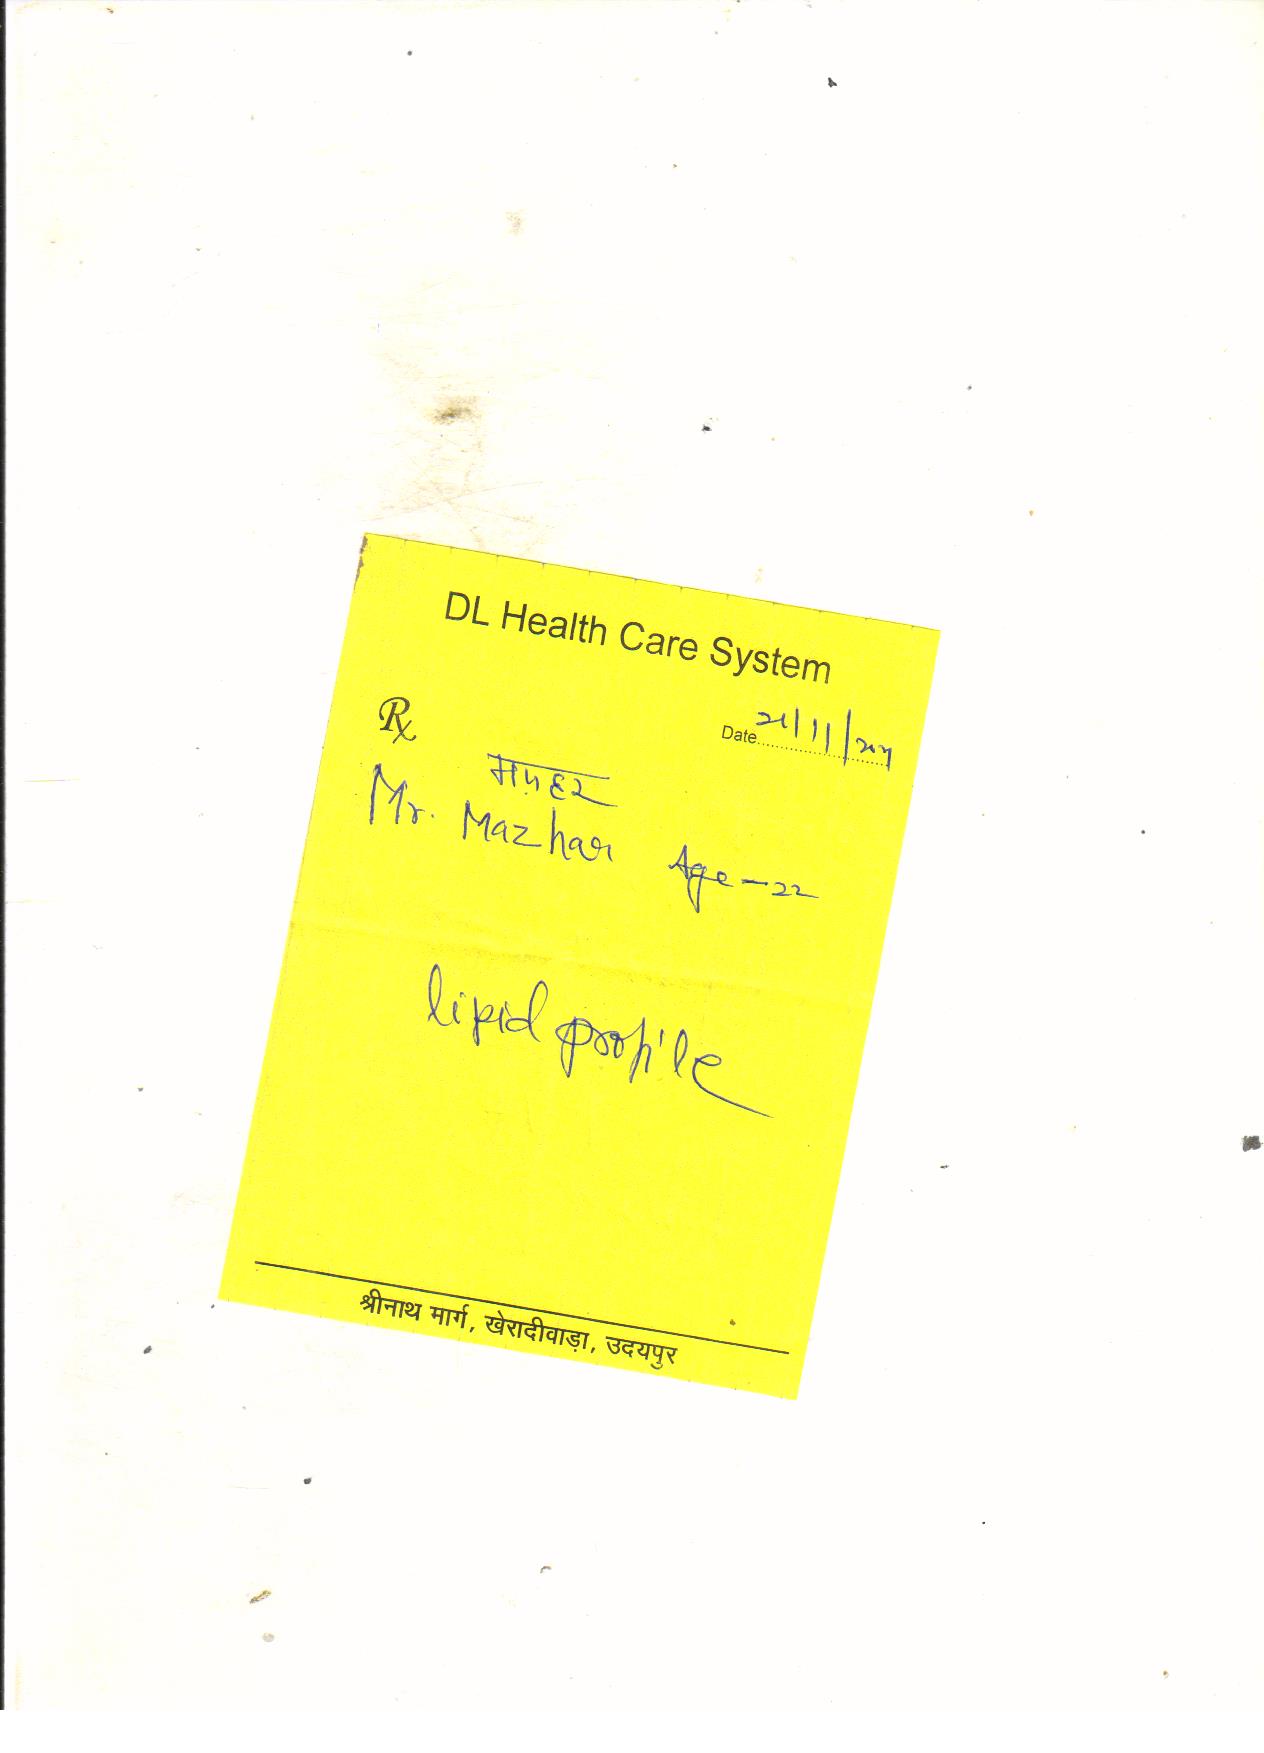 DL Health Care System
Rx
Date
मज़हर
Mr. Mazhar Age - 22
lipid profile
श्रीनाथ मार्ग, खेरादीवाड़ा, उदयपुर